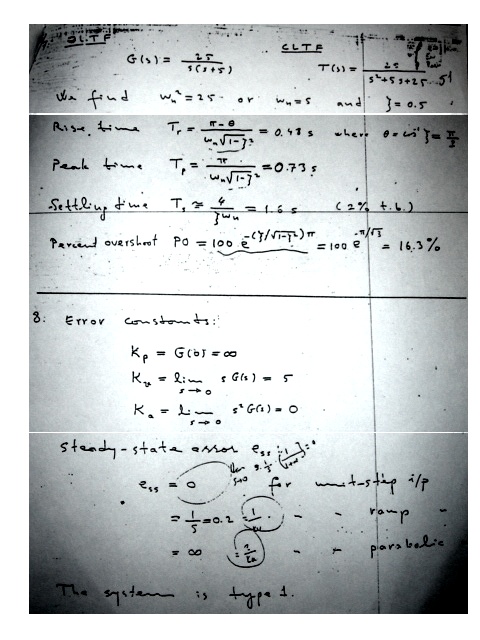 OLTF CLTF
G(s) = 25 / s(s+5) T(s) = 25 / s²+5s+25
We find ωn² = 25 or ωn = 5 and ζ = 0.5
Rise time Tr = π-θ / ωn√1-ζ² = 0.48 s where θ = cos⁻¹ζ = π/3
Peak time Tp = π / ωn√1-ζ² = 0.73 s
Settling time Ts ≈ 4 / ζωn = 1.6 s (2% t.b.)
Percent overshoot PO = 100 e^-(ζ/√1-ζ²)π = 100 e^-π/√3 = 16.3%
8: Error constants:
Kp = G(0) = ∞
Kv = lim s→0 s G(s) = 5
Ka = lim s→0 s² G(s) = 0
Steady-state error ess :
ess = 0 for unit-step i/p
= 1/5 = 0.2 = 1/Kv " " ramp "
= ∞ " " parabolic
The system is type 1.